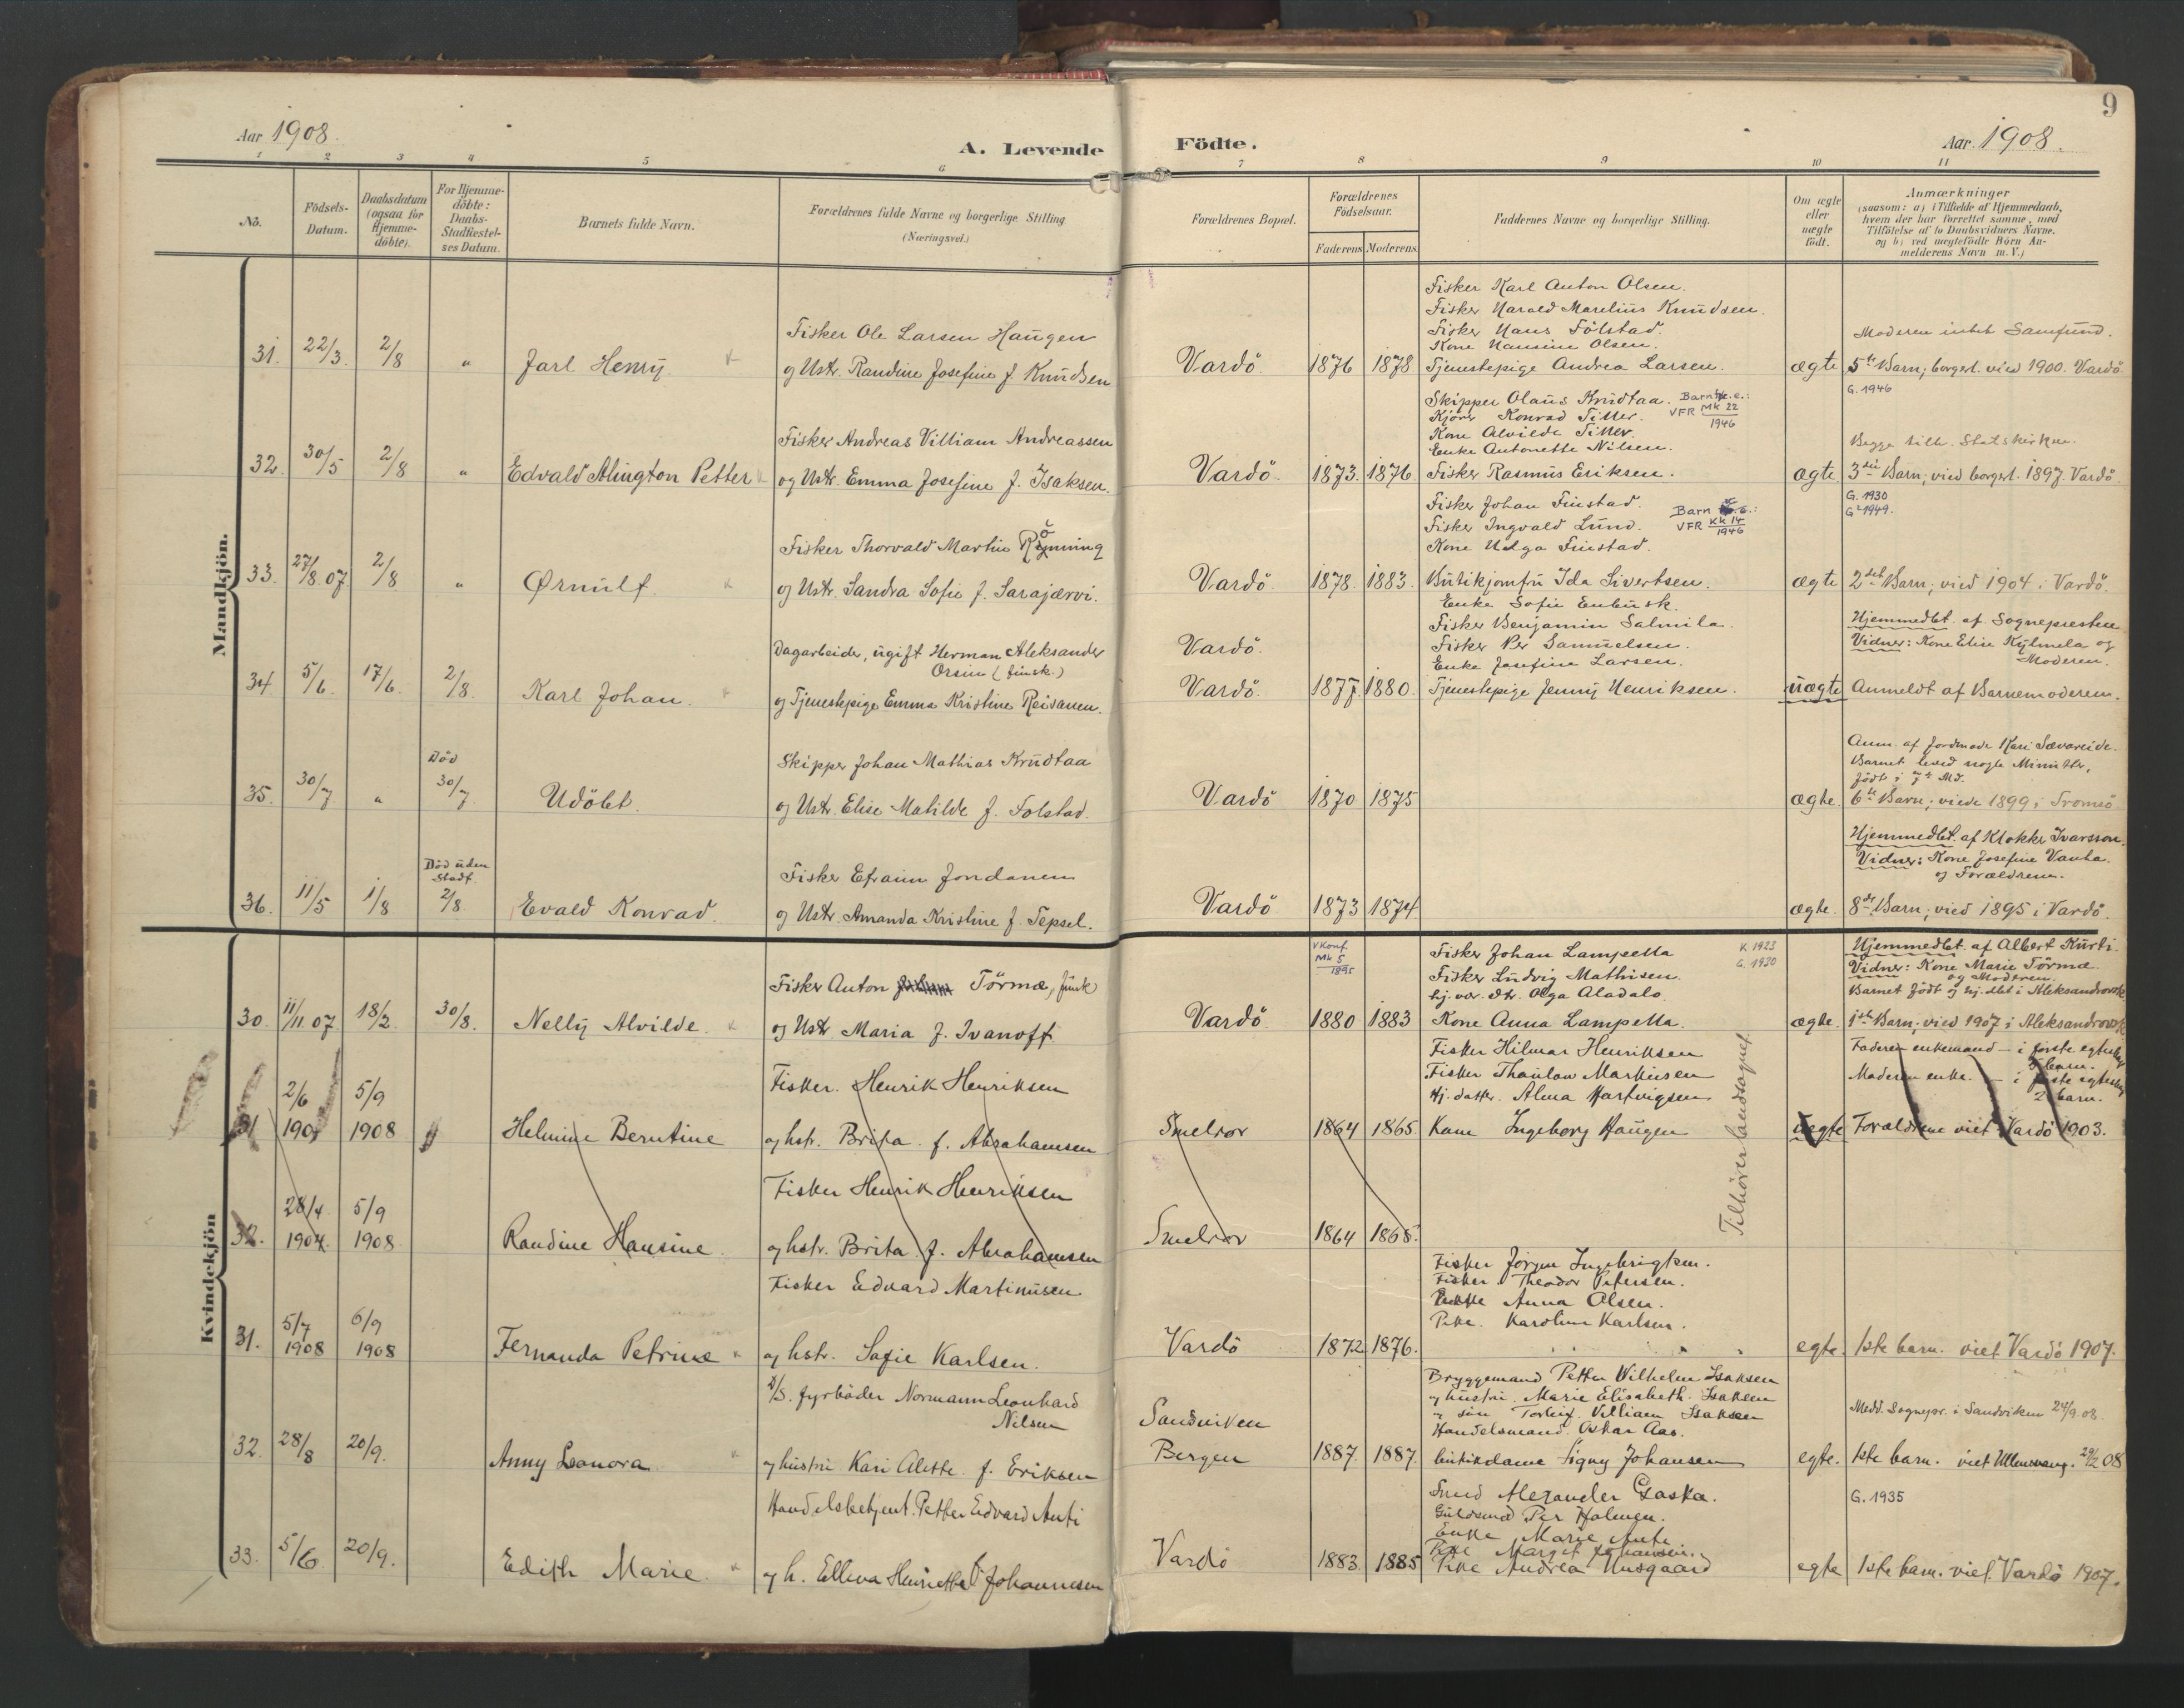 Aar 1908.
A. Levende Födte.
Aar 1908.
9
1 2 3 4 5 6 7 8 9 10 11
No.
Födsels-
Datum.
Daabsdatum
(ogsaa for
Hjemme-
döbte).
For Hjemme-
döbte:
Daabs-
Stadfæstel-
ses Datum.
Barnets fulde Navn.
Forældrenes fulde Navne og borgerlige Stilling
(Næringsvei.)
Forældrenes Bopæl.
Forældrenes
Födselsaar.
Faderens Moderens
Faddernes Navne og borgerlige Stilling.
Om ægte
eller
uægte
födt.
Anmærkninger
(saasom: a) i Tilfælde af Hjemmedaab,
hvem der har forrettet samme, med
Tilföielse af to Daabsvidners Navne,
og b) ved uægtefödte Börn An-
melderens Navn m. V.)
Mandkjön.
31. 22/3. 2/8 " Jarl Henry
Fisker Ole Larsen Haugen
og Ustr. Randine Josefine f. Knudsen
Vardö 1876 1878
Fisker Karl Anton Olsen.
Fisker Harald Marelius Knudsen.
Fisker Hans Folstad.
Kone Hansine Olsen.
Tjenestepige Andrea Larsen.
ægte
Moderen intet Samfund.
5te Barn; borgerl. vied 1900. Vardö.
G. 1946
32. 30/5 2/8 " Edvald Alington Petter
Fisker Andreas Villiam Andreassen
og Ustr. Emma Josefine f. Isaksen.
Vardö. 1873. 1876.
Skipper Olaus Krudtaa.
Kjører Konrad Titter.
Kone Alvilde Titter.
Enke Antonette Nilsen.
Fisker Rasmus Eriksen.
VFR Mk 22
1946
ægte.
Begge tilh. Statskirken.
3die Barn; vied borgerl. 1897. Vardö.
G. 1930
G² 1949.
33. 27/8.07 2/8 " Ørnulf.
Fisker Thorvald Martin Rönning
og Ustr. Sandra Sofie f. Sarajærvi.
Vardö 1878. 1883.
Fisker Johan Finstad.
Fisker Ingvald Lund.
Kone Helga Finstad.
Butikjomfru Ida Sivertsen.
Enke Sofie Enbusk.
VFR KK 14
1946
ægte
2det Barn; vied 1904 i Vardö.
34 5/6. 17/6. 2/8. Karl Johan.
Dagarbeider, ugift Herman Aleksander
Orsin (finsk.)
og Tjenestepige Emma Kristine Reisanen.
Vardö.
Vardö. 1877. 1880.
Fisker Benjamin Salmila.
Fisker Per Samuelsen.
Enke Josefine Larsen.
Tjenestepige Jenny Henriksen.
uægte
Hjemmedbt. af Sognepresten
Vidner: Kone Elise Kylmela og
Moderen.
Anmeldt af Barnemoderen.
35. 30/7 " Död
30/7. Udöbt.
Skipper Johan Mathias Krudtaa
og Ustr. Elise Matilde f. Folstad.
Vardö 1870 1875
ægte.
Anm. af Jordmode Kari Sævareide.
Barnet leved nogle Minutter,
födt i 7de Md.
6te Barn; viede 1899 i Tromsö
36. 11/5 1/8 Död uden
Stadf.
2/8. Evald Konrad.
Fisker Efraim Jondanem
og Ustr. Amanda Kristine f. Tepsel.
Vardö 1873 1874
ægte.
Hjemmedbt. af Klokker Ivarsson.
Vidner: Kone Josefine Vanha.
og Forældrene.
8de Barn; vied 1895 i Vardö.
Kvindekjön
30. 11/11.07. 18/2. 30/8. Nelly Alvilde.
Fisker Anton Törmæ, finsk
og Ustr Maria f. Ivanoff.
Vardö. 1880 1883
V Konf.
Mk 5
1895
Fisker Johan Lampella
Fisker Ludvig Mathisen
hj. vær. Dtr. Olga Aladalo.
Kone Anna Lampella.
K. 1923
G. 1930
ægte.
Hjemmedbt. af Albert Kurti.
Vidner: Kone Marie Törmæ.
og Moderen.
Barnet födt og hj. dbt i Aleksandrovsk
1ste Barn; vied 1907 i Aleksandrovsk
31 2/6 190 5/9 1908 Helmine Berntine
Fisker. Henrik Henriksen
og hstr. Brita f. Abrahamsen
Smelror 1864 1865
Fisker Hilmar Henriksen
Fisker Thaulow Markusen
Hj. datter. Alma Hartvigsen
Kone Ingeborg Haugen
Tilhører landsognet
Uegte
Faderen enkemand – i første egteskap
5 barn.
Moderen enke. – i første egteskap
2 barn.
Forældrene viet Vardö 1903.
32. 28/4 1904. 5/9 1908 Randine Hansine.
Fisker Henrik Henriksen
og hstr. Brita f. Abrahamsen
Smelror 1864 1865.
31. 5/7 1908 6/9 1908 Fernanda Petrine
Fisker Edvard Martinusen
og hstr. Sofie Karlsen.
Vardö 1872 1876.
Fisker Jörgen Ingebrigtsen.
Fisker Theodor Petersen.
Enke Anna Olsen.
Pike. Karoline Karlsen.
egte.
1ste barn. viet Vardö 1907.
32. 28/8 20/9. Anny Leonora
D/S. fyrbøder Normann Leonhard
Nilsen
og hustru Kari Alette f. Eriksen
Sandviken
Bergen 1887. 1887.
Bryggemand Petter Wilhelm Isaksen
og hustru. Marie Elisabeth. Isaksen
og søn Torleif Villiam Isaksen
Handelsmand Oskar Aas.
butikdame Signy Johansen
egte.
Medd. Sognepr. i Sandviken 24/9.08.
1ste barn. viet Ullensvang. 29/2 08
33. 5/6. 20/9. Edith Marie.
Handelsbetjent. Petter Edvard Anti
og h. Ellena Henriette f. Johannesen
Vardö 1883. 1885
Smed Alexander Gaska.
Guldsmed Per Holmen.
Enke Marie Anti
Pike Margit Johansen.
Pike Andrea Husgaard
egte
G. 1935
1ste barn. viet. Vardö 1907.